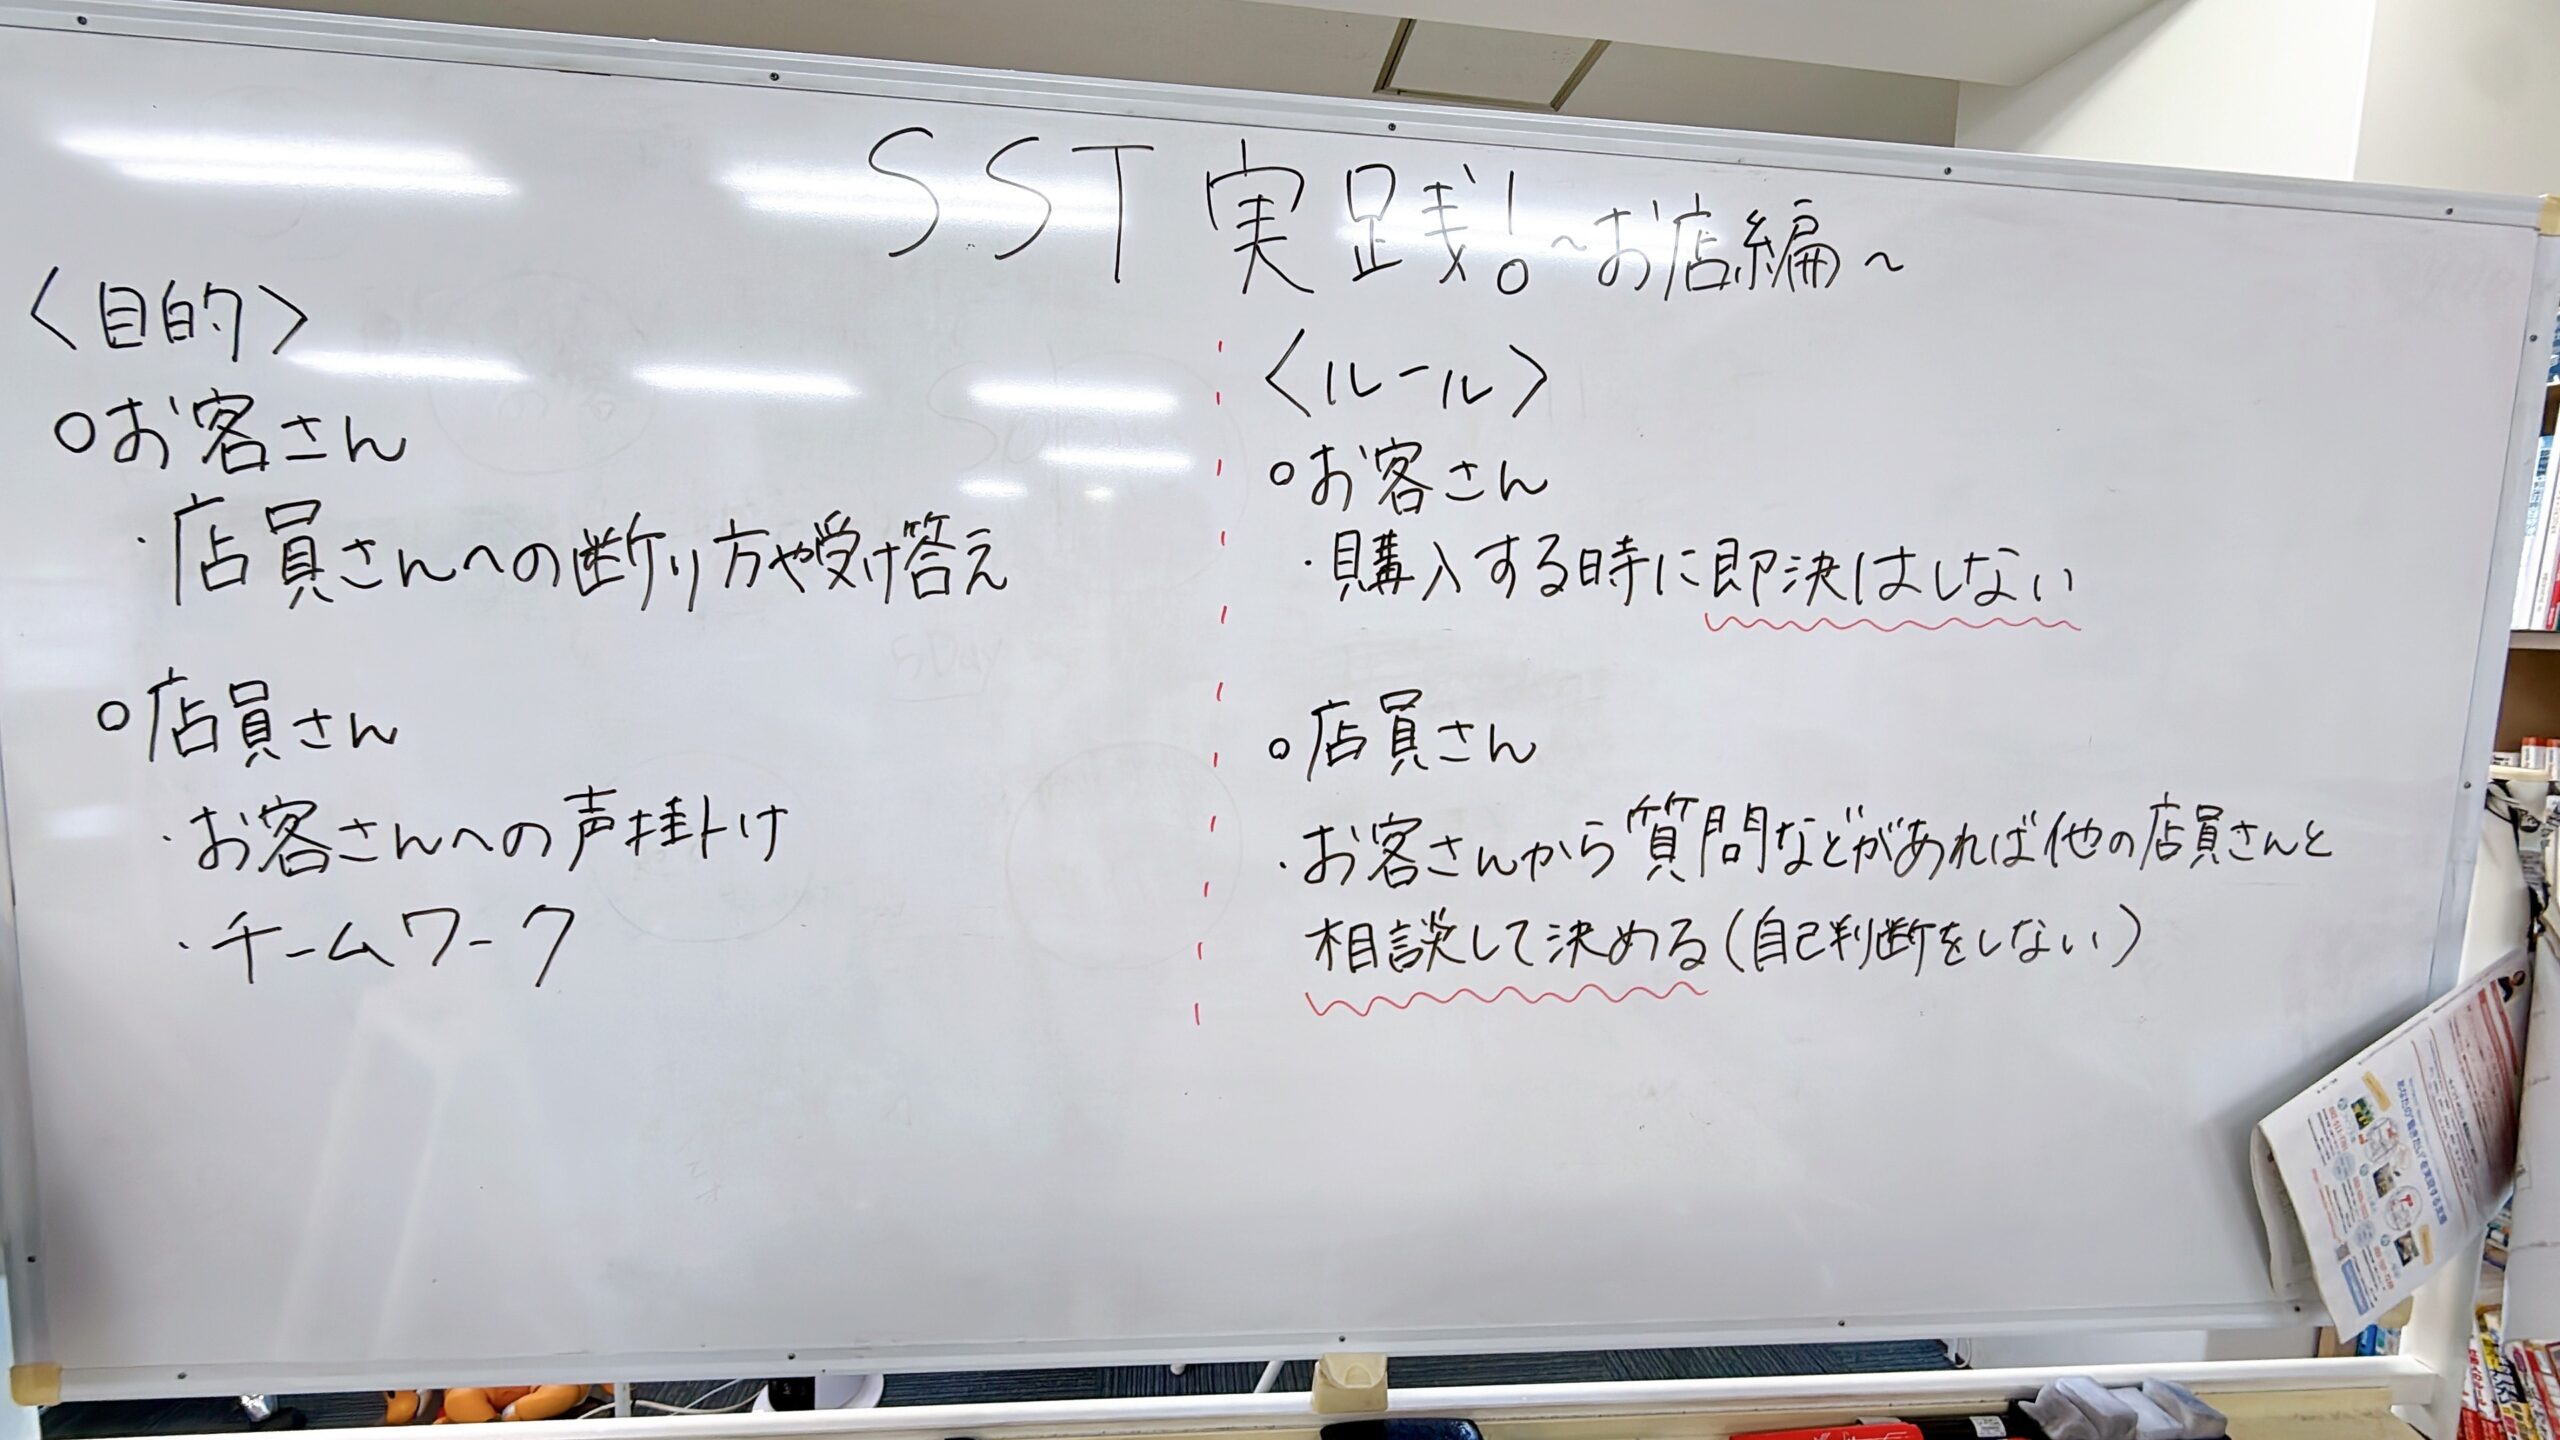 SST実践！～お店編～
〈目的〉
○お客さん
・店員さんへの断り方や受け答え
○店員さん
・お客さんへの声掛け
・チームワーク
〈ルール〉
○お客さん
・購入する時に即決はしない
○店員さん
・お客さんから質問などがあれば他の店員さんと
相談して決める(自己判断をしない)